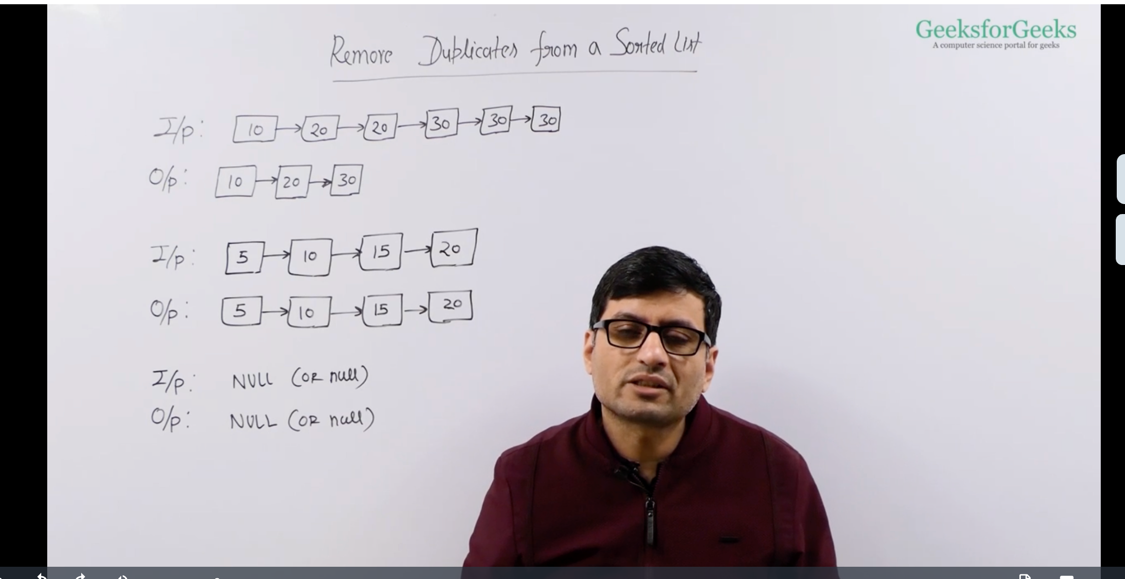 GeeksforGeeks
A computer science portal for geeks
Remove Duplicates from a Sorted List
I/p: 10 20 20 30 30 30
O/p: 10 20 30
I/p: 5 10 15 20
O/p: 5 10 15 20
I/p: NULL (OR null)
O/p: NULL (OR null)